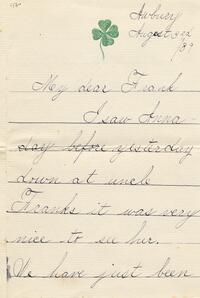 Awbury
August 3rd
/89
My dear Frank
I saw Anna
day before yesterday
down at uncle
Franks it was very
nice to see her.
We have just been